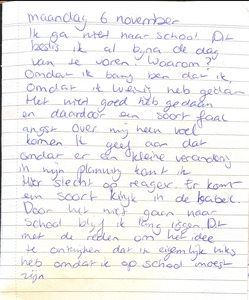 maandag 6 november
Ik ga niet naar school. Dit
beslis ik al bijna de dag
van te voren. Waarom?
Omdat ik bang ben dat ik,
omdat ik weinig heb gedaan
Het niet goed heb gedaan
en daardoor een soort faal
angst over mij heen voel
komen. Ik geef aan dat
omdat er een kleine verandering
in mijn planning komt ik
Hier slecht op reageer. Er komt
een soort in de kabel.
Door het niet gaan naar
school blijf ik lang liggen. Dit
met de reden om het idee
te ontwijken dat ik eigenlijk niks
heb omdat ik op school moest
zijn